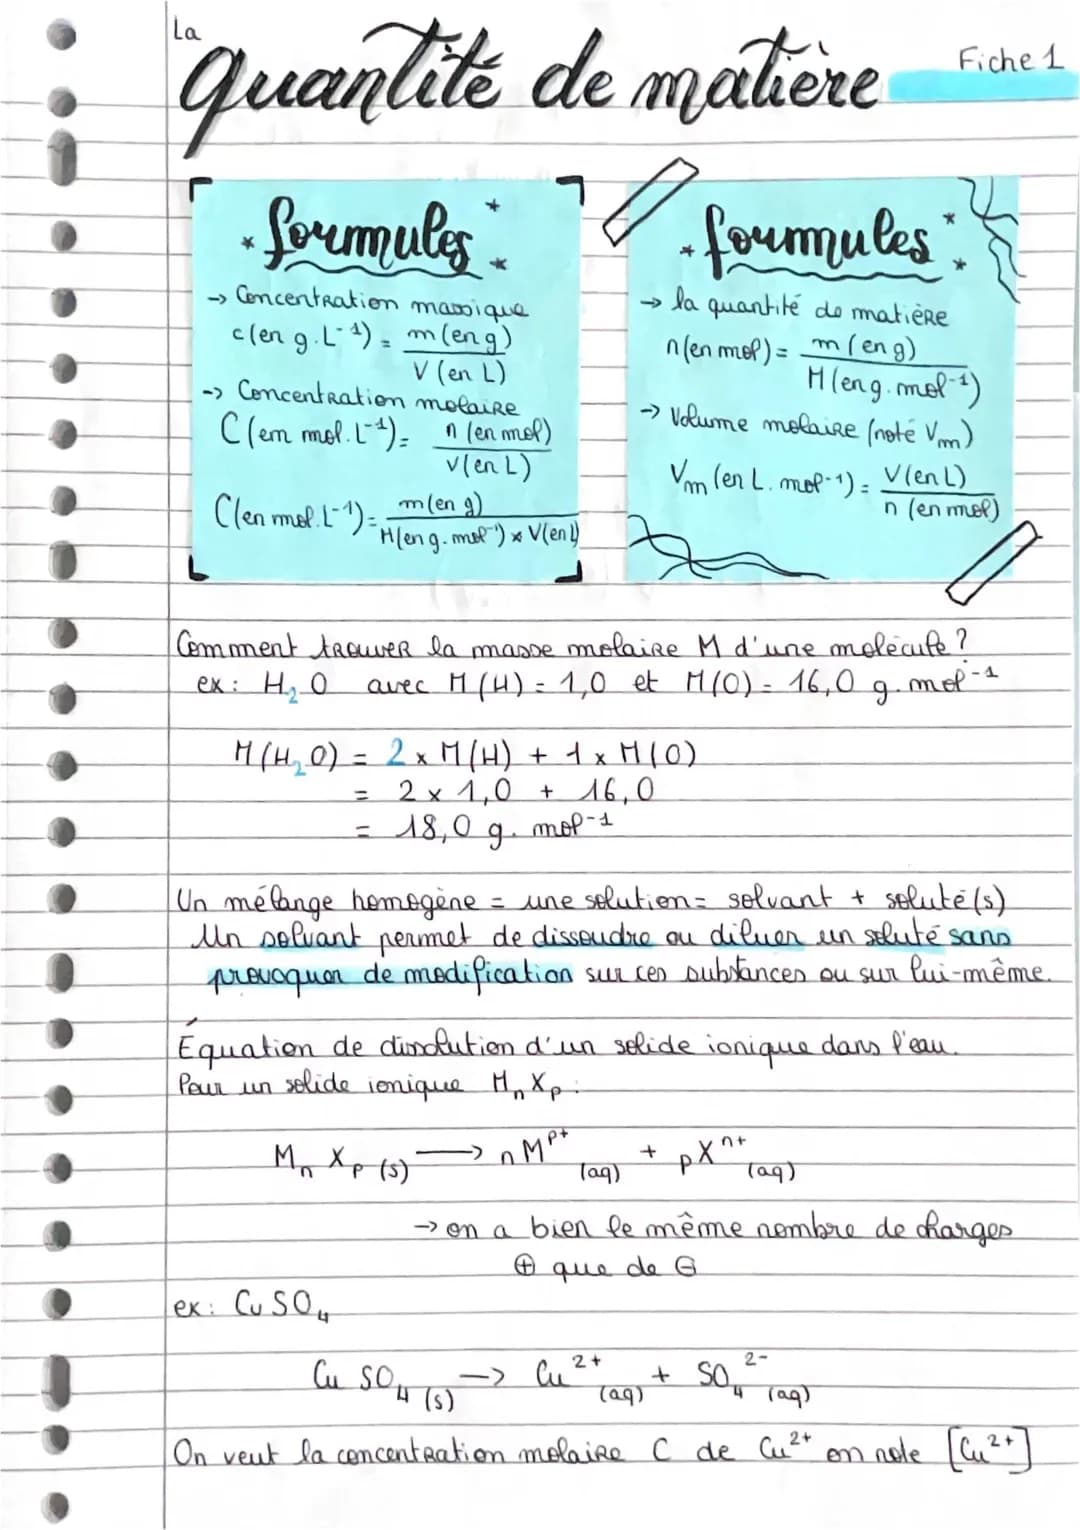 La
quantité de matière
Fiche 1
formules
→ Concentration massique
c(en g.L⁻¹) = m(en g)
V (en L)
→ Concentration molaire
C(em mol.L⁻¹) = n (en mol)
V(en L)
C(en mol.L⁻¹) = m(en g)
M(en g.mol⁻¹) × V(en L)
formules
→ la quantité de matière
n(en mol) = m (en g)
M(en g.mol⁻¹)
→ Volume molaire (noté Vm)
Vm (en L.mol⁻¹) = V(en L)
n (en mol)
Comment trouver la masse molaire M d'une molécule ?
ex : H₂O avec M(H) = 1,0 et M(O) = 16,0 g.mol⁻¹
M(H₂O) = 2 × M(H) + 1 × M(O)
= 2 × 1,0 + 16,0
= 18,0 g.mol⁻¹
Un mélange homogène = une solution = solvant + soluté(s)
Un solvant permet de dissoudre ou diluer un soluté sans
provoquer de modification sur ces substances ou sur lui-même.
Équation de dissolution d'un solide ionique dans l'eau.
Pour un solide ionique MₙXₚ :
MₙXₚ (s) → nMᵖ⁺ (aq) + pXⁿ⁺ (aq)
→ on a bien le même nombre de charges
⊕ que de ⊖
ex : CuSO₄
CuSO₄ (s) → Cu²⁺ (aq) + SO₄²⁻ (aq)
On veut la concentration molaire C de Cu²⁺ on note [Cu²⁺]